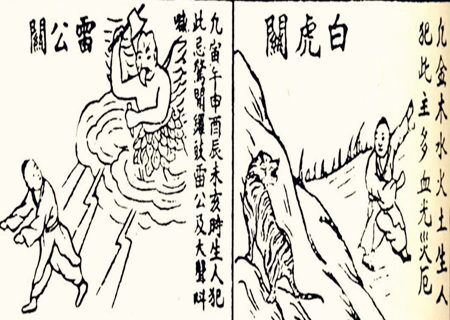 白虎關
凡金木水火土生人
犯此主多血光災厄
雷公關
凡寅午申酉辰未亥時生人犯
此忌驚聞鑼鼓雷公及大聲叫
喊